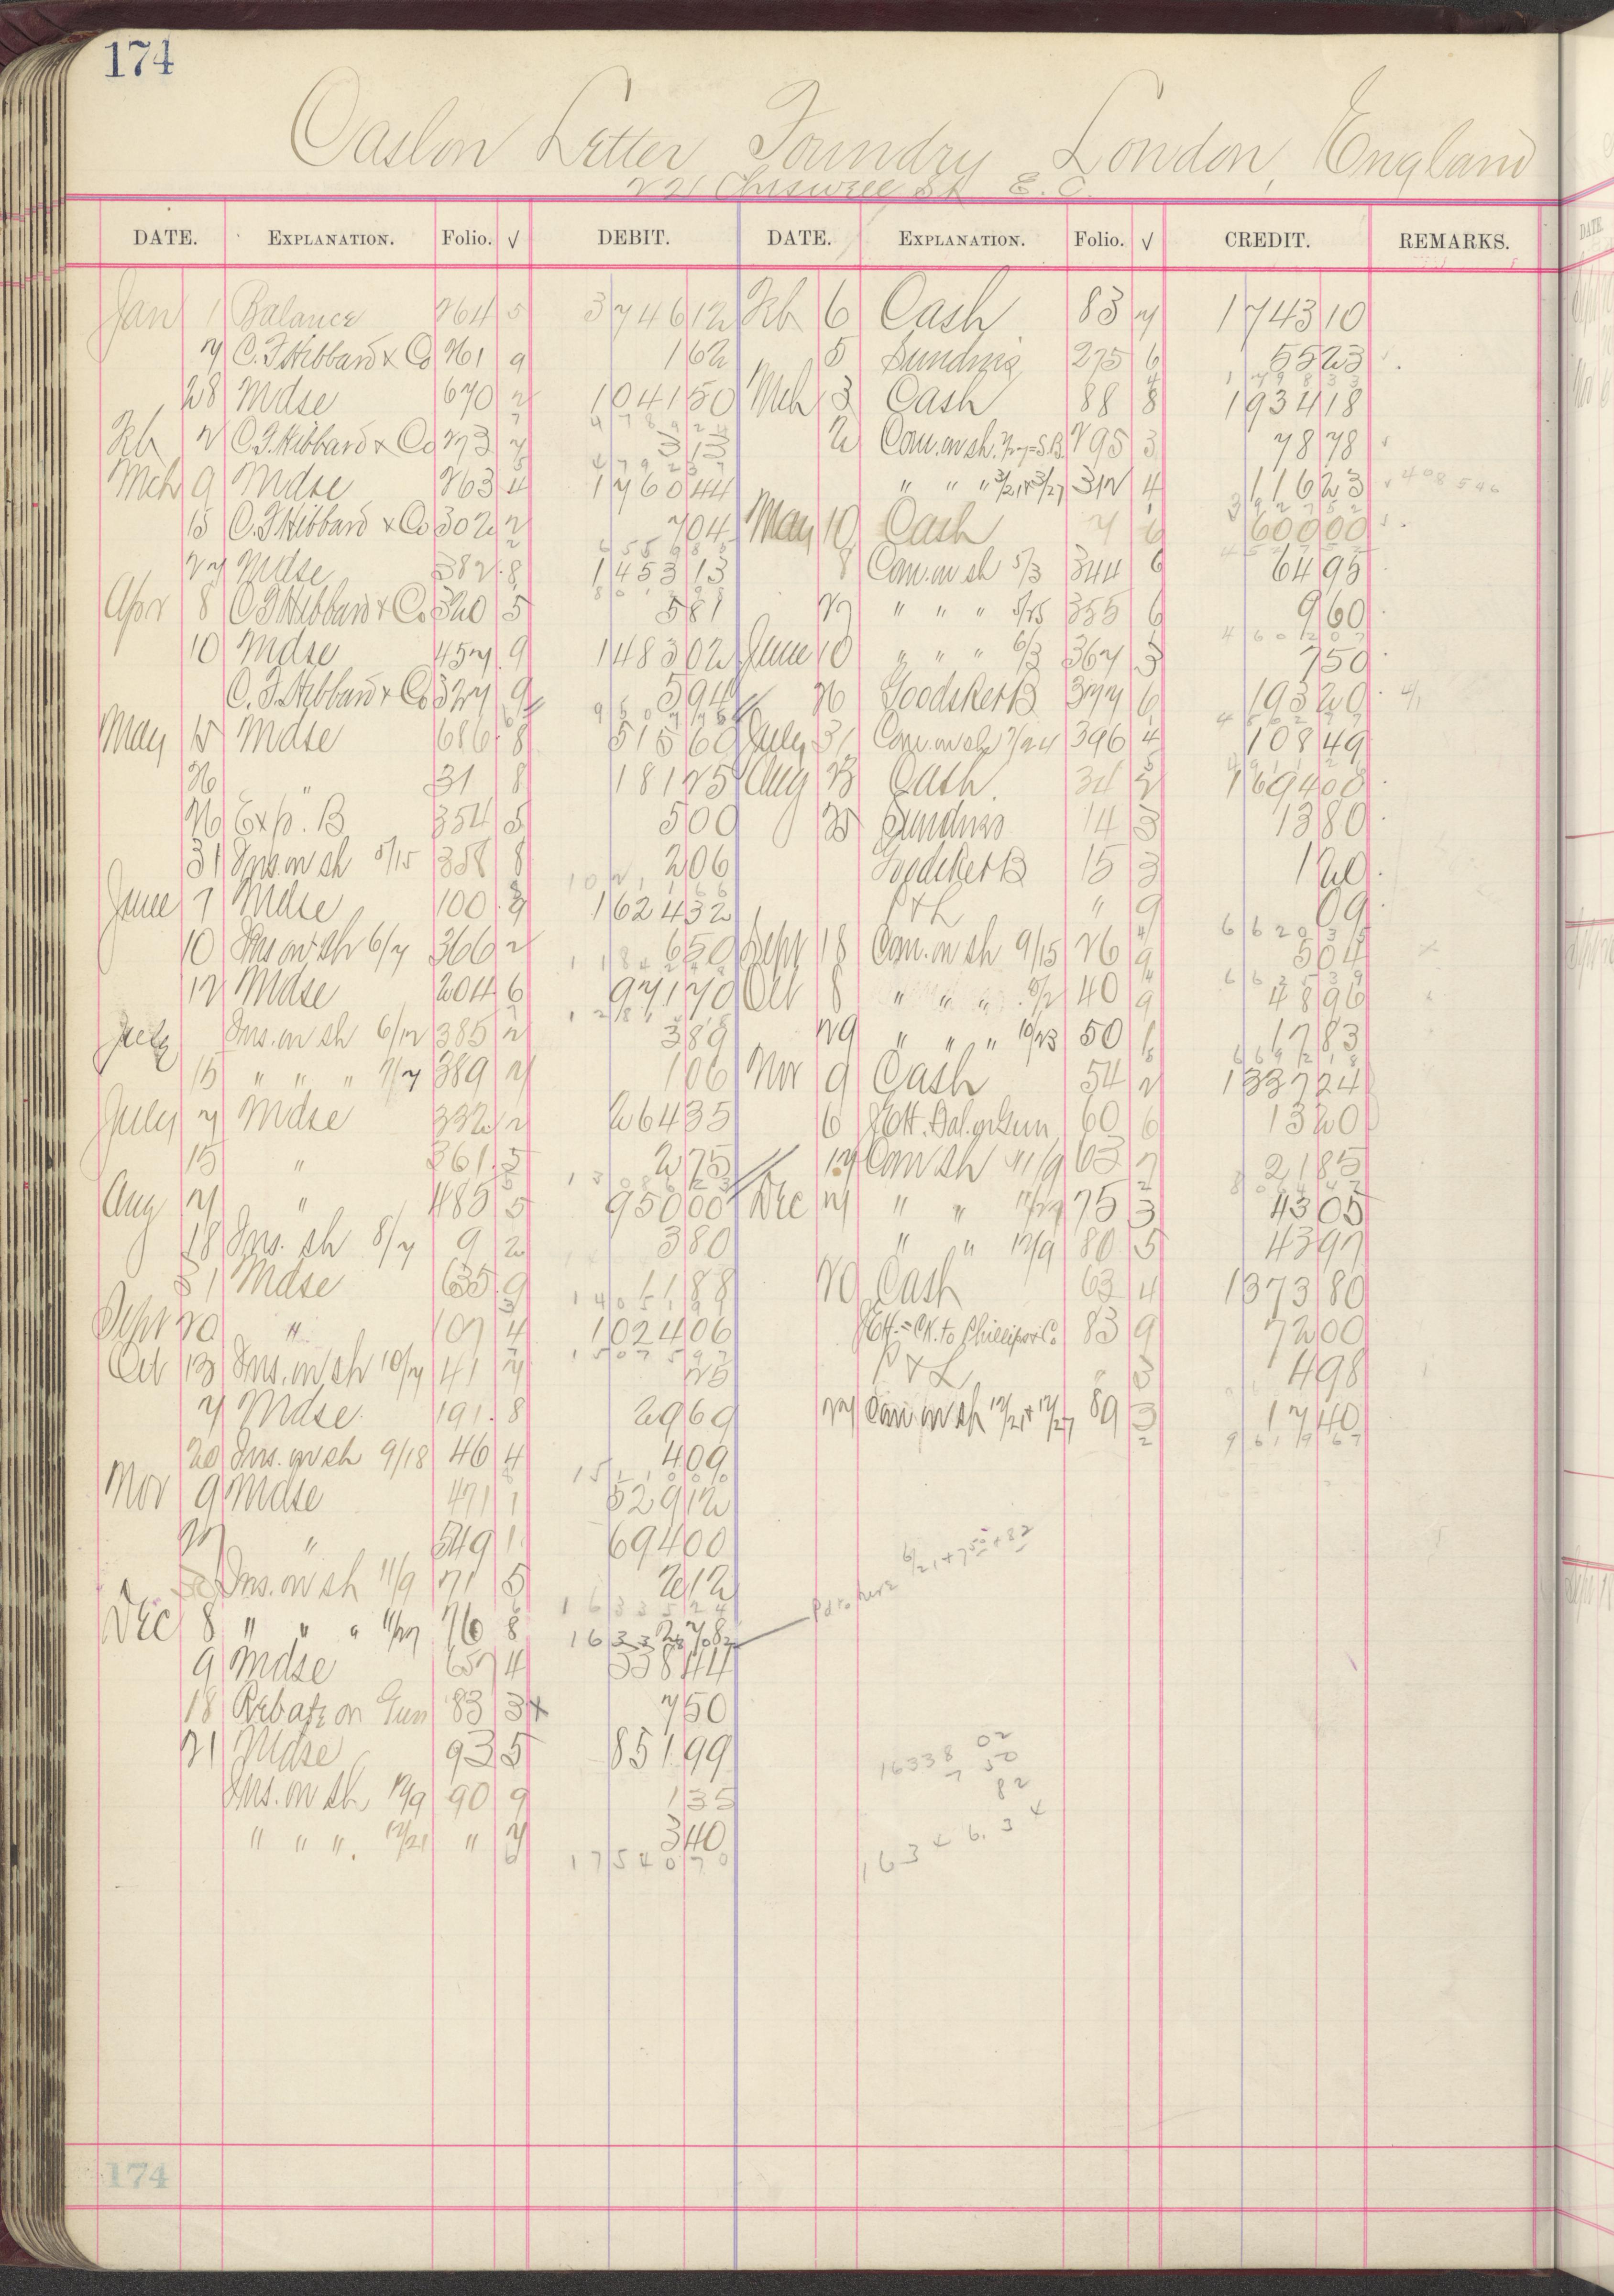 174
Caslon Letter Foundry London, England
Chiswell St E. C.
DATE. EXPLANATION. Folio. √ DEBIT. DATE. EXPLANATION. Folio. √ CREDIT. REMARKS.
Jan 1 Balance 264 5 3746 12 Feb 6 Cash 83 7 1743 10
7 C. F. Hibbard & Co 261 9 1 62 5 Sundries 275 6 55 23
28 Mdse 670 2 1041 50 Mch 3 Cash 88 8 1934 18
Feb 2 C. F. Hibbard & Co 273 7 3 13 2 Com. on sh. 295 3 78 78
Mch 9 Mdse 263 4 1760 44 " " " 3/21 & 3/27 312 4 116 23
15 C. F. Hibbard & Co 302 2 7 04 May 10 Cash 7 6 600 00
27 Mdse 382 8 1453 13 8 Com. on sh 5/3 344 6 64 95
Apr 8 C F Hibbard & Co 320 5 5 81 27 " " " 5/25 355 6 9 60
10 Mdse 457 9 1483 02 June 10 " " " 6/3 367 3 7 50
C. F. Hibbard & Co 327 9 5 94 26 Goods Ret B 377 6 193 20
May 15 Mdse 686 8 515 60 July 31 Com. on sh 7/24 396 4 108 49
26 " 31 8 181 25 Aug 23 Cash 34 2 1694 08
26 Exp. B 354 5 5 00 25 Sundries 14 3 13 80
31 Ins. on sh 5/15 358 8 2 06 Goods Ret B 15 3 1 20
June 1 Mdse 100 9 1624 32 P & L " 9 09
10 Ins on sh 6/7 366 2 6 50 Sept 18 Com. on sh 9/15 26 9 5 04
12 Mdse 204 6 971 70 Oct 8 " " " 40 9 48 96
July Ins. on sh 6/12 385 2 3 89 29 " " " 10/23 50 17 83
15 " " " 7/7 389 7 1 06 Nov 9 Cash 54 2 1337 24
July 7 Mdse 332 2 264 35 6 60 6 13 20
15 " 361 5 2 75 17 Com sh 11/9 63 7 21 85
Aug 7 " 485 5 950 00 Dec 7 " " 11/27 75 3 43 05
18 Ins. sh 8/7 9 2 3 80 " " 12/9 80 5 43 97
31 Mdse 635 9 11 88 29 Cash 63 4 1373 80
Sept 20 " 107 4 1024 06 83 9 72 00
Oct 13 Ins. on sh 10/7 41 7 25 P & L " 3 4 98
7 Mdse 191 8 29 69 27 Com. on sh 12/21 & 12/27 89 3 17 40
9 6 1 9 6 7
20 Ins. on sh 9/18 46 4 4 09
Nov 9 Mdse 471 1 529 12
27 " 549 1 694 00
Ins. on sh 11/9 71 5 2 12
1 6 3 3 5 2 4
Dec 8 " " " 11/27 76 8 2 78
Pd to here
9 Mdse 657 4 338 44
18 Rebate on Gum 83 3 x 7 50
21 Mdse 93 5 851 99
16338 02
7 50
82
Ins. on sh 12/9 90 9 1 35
" " " 12/21 " 7 3 40
1 6 3 4 6. 3 4
1 7 5 4 0 7 0
174